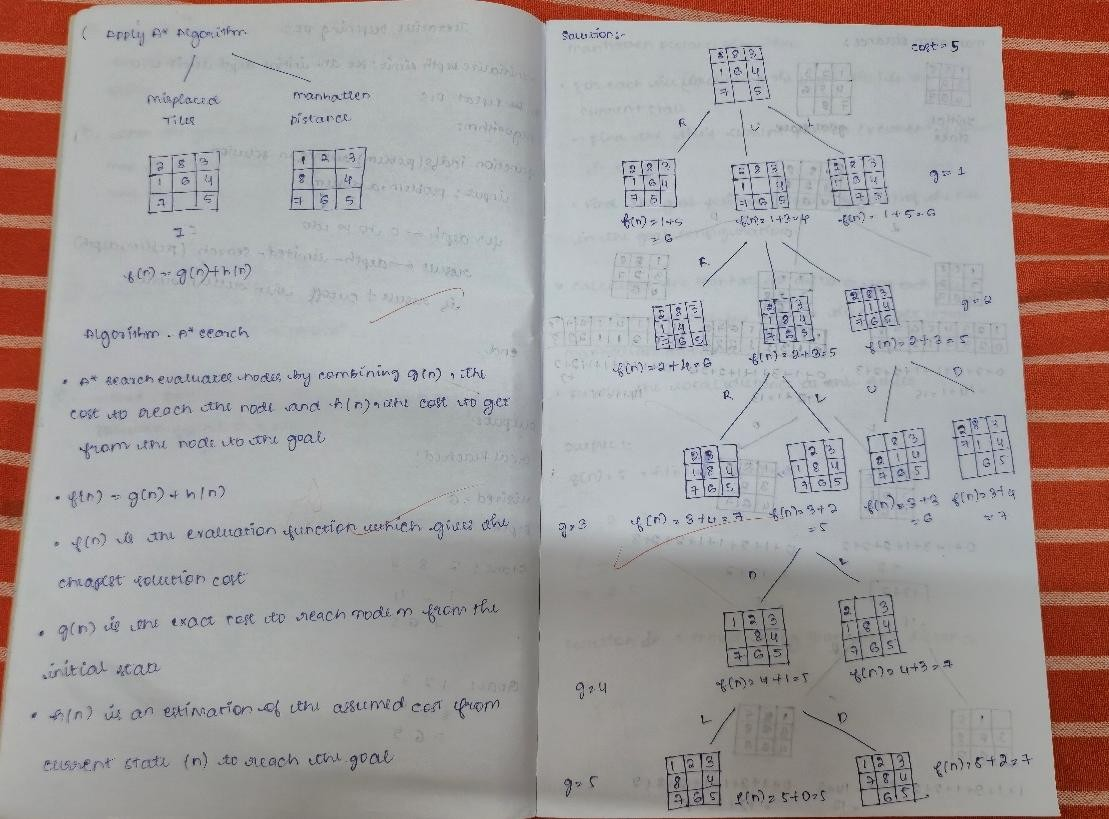 ( Apply A* Algorithm
Misplaced
Tiles
Manhatten
Distance
2 8 3
1 6 4
7 5
1 2 3
8 4
7 6 5
I:
f(n) = g(n)+h(n)
Algorithm . A* search
• A* search evaluates nodes by combining g(n), the
cost to reach the node and h(n), the cost to get
from the node to the goal
• f(n) = g(n) + h(n)
• f(n) is the evaluation function which gives the
cheapest solution cost
• g(n) is the exact cost to reach node n from the
initial state
• h(n) is an estimation of the assumed cost from
current state (n) to reach the goal
Solution:-
cost = 5
2 8 3
1 6 4
7 5
R U L
g=1
f(n)=1+5
= 6
f(n)=1+3=4
f(n) = 1+5=6
R
g=2
f(n)=2+4=6
f(n)=2+3=5
f(n)=2+3=5
R L U D
g=3
f(n) = 3+4=7
f(n)=3+2
=5
f(n)=3+3
=6
f(n)=3+4
=7
2 3
1 8 4
7 6 5
8 3
2 1 4
7 6 5
2 8 3
7 1 4
6 5
D L
1 2 3
8 4
7 6 5
2 3
1 8 4
7 6 5
g=4
f(n)=4+1=5
f(n)=4+3=7
L D
g=5
1 2 3
8 4
7 6 5
f(n)=5+0=5
1 2 3
7 8 4
6 5
f(n)=5+2=7